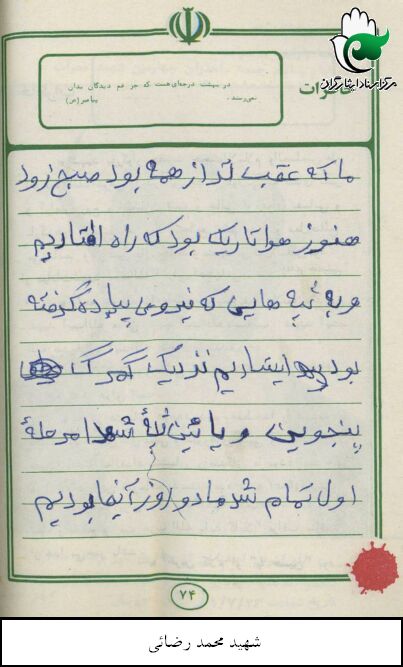 مرکز اسناد ایثارگران
خاطرات
در بهشت درجه‌ای هست که جز غم دیدگان بدان
نمی‌رسند. پیامبر(ص)
ما که عقب تر از همه بود صبح زود
هنوز هوا تاریک بود که راه افتادیم
و به تپه هایی که نیروی پیاده گرفته
بودند ایستادیم نزدیک گمرگ
پنجوین و پائین تپهٔ شهدا مرحلهٔ
اول تمام شد ما دو روز آنجا بودیم
۷۴
شهید محمد رضائی